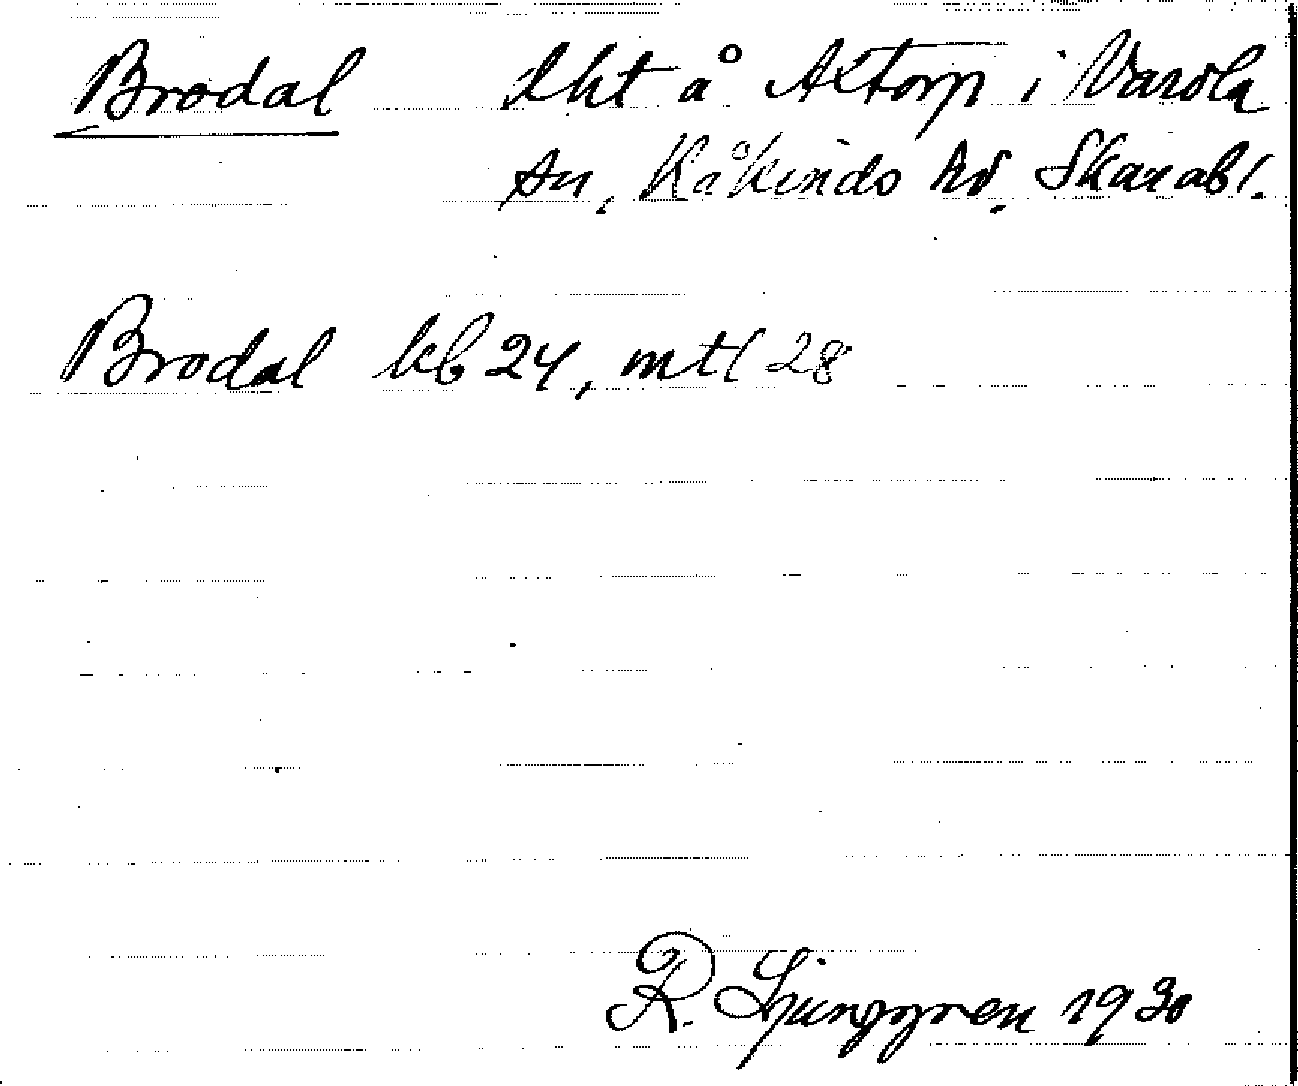 Brodal lht å Aktorp i Varola
sn, Kåkinds hd. Skarabl.
Brodal kb 24, mtl 28
R. Ljunggren 1930